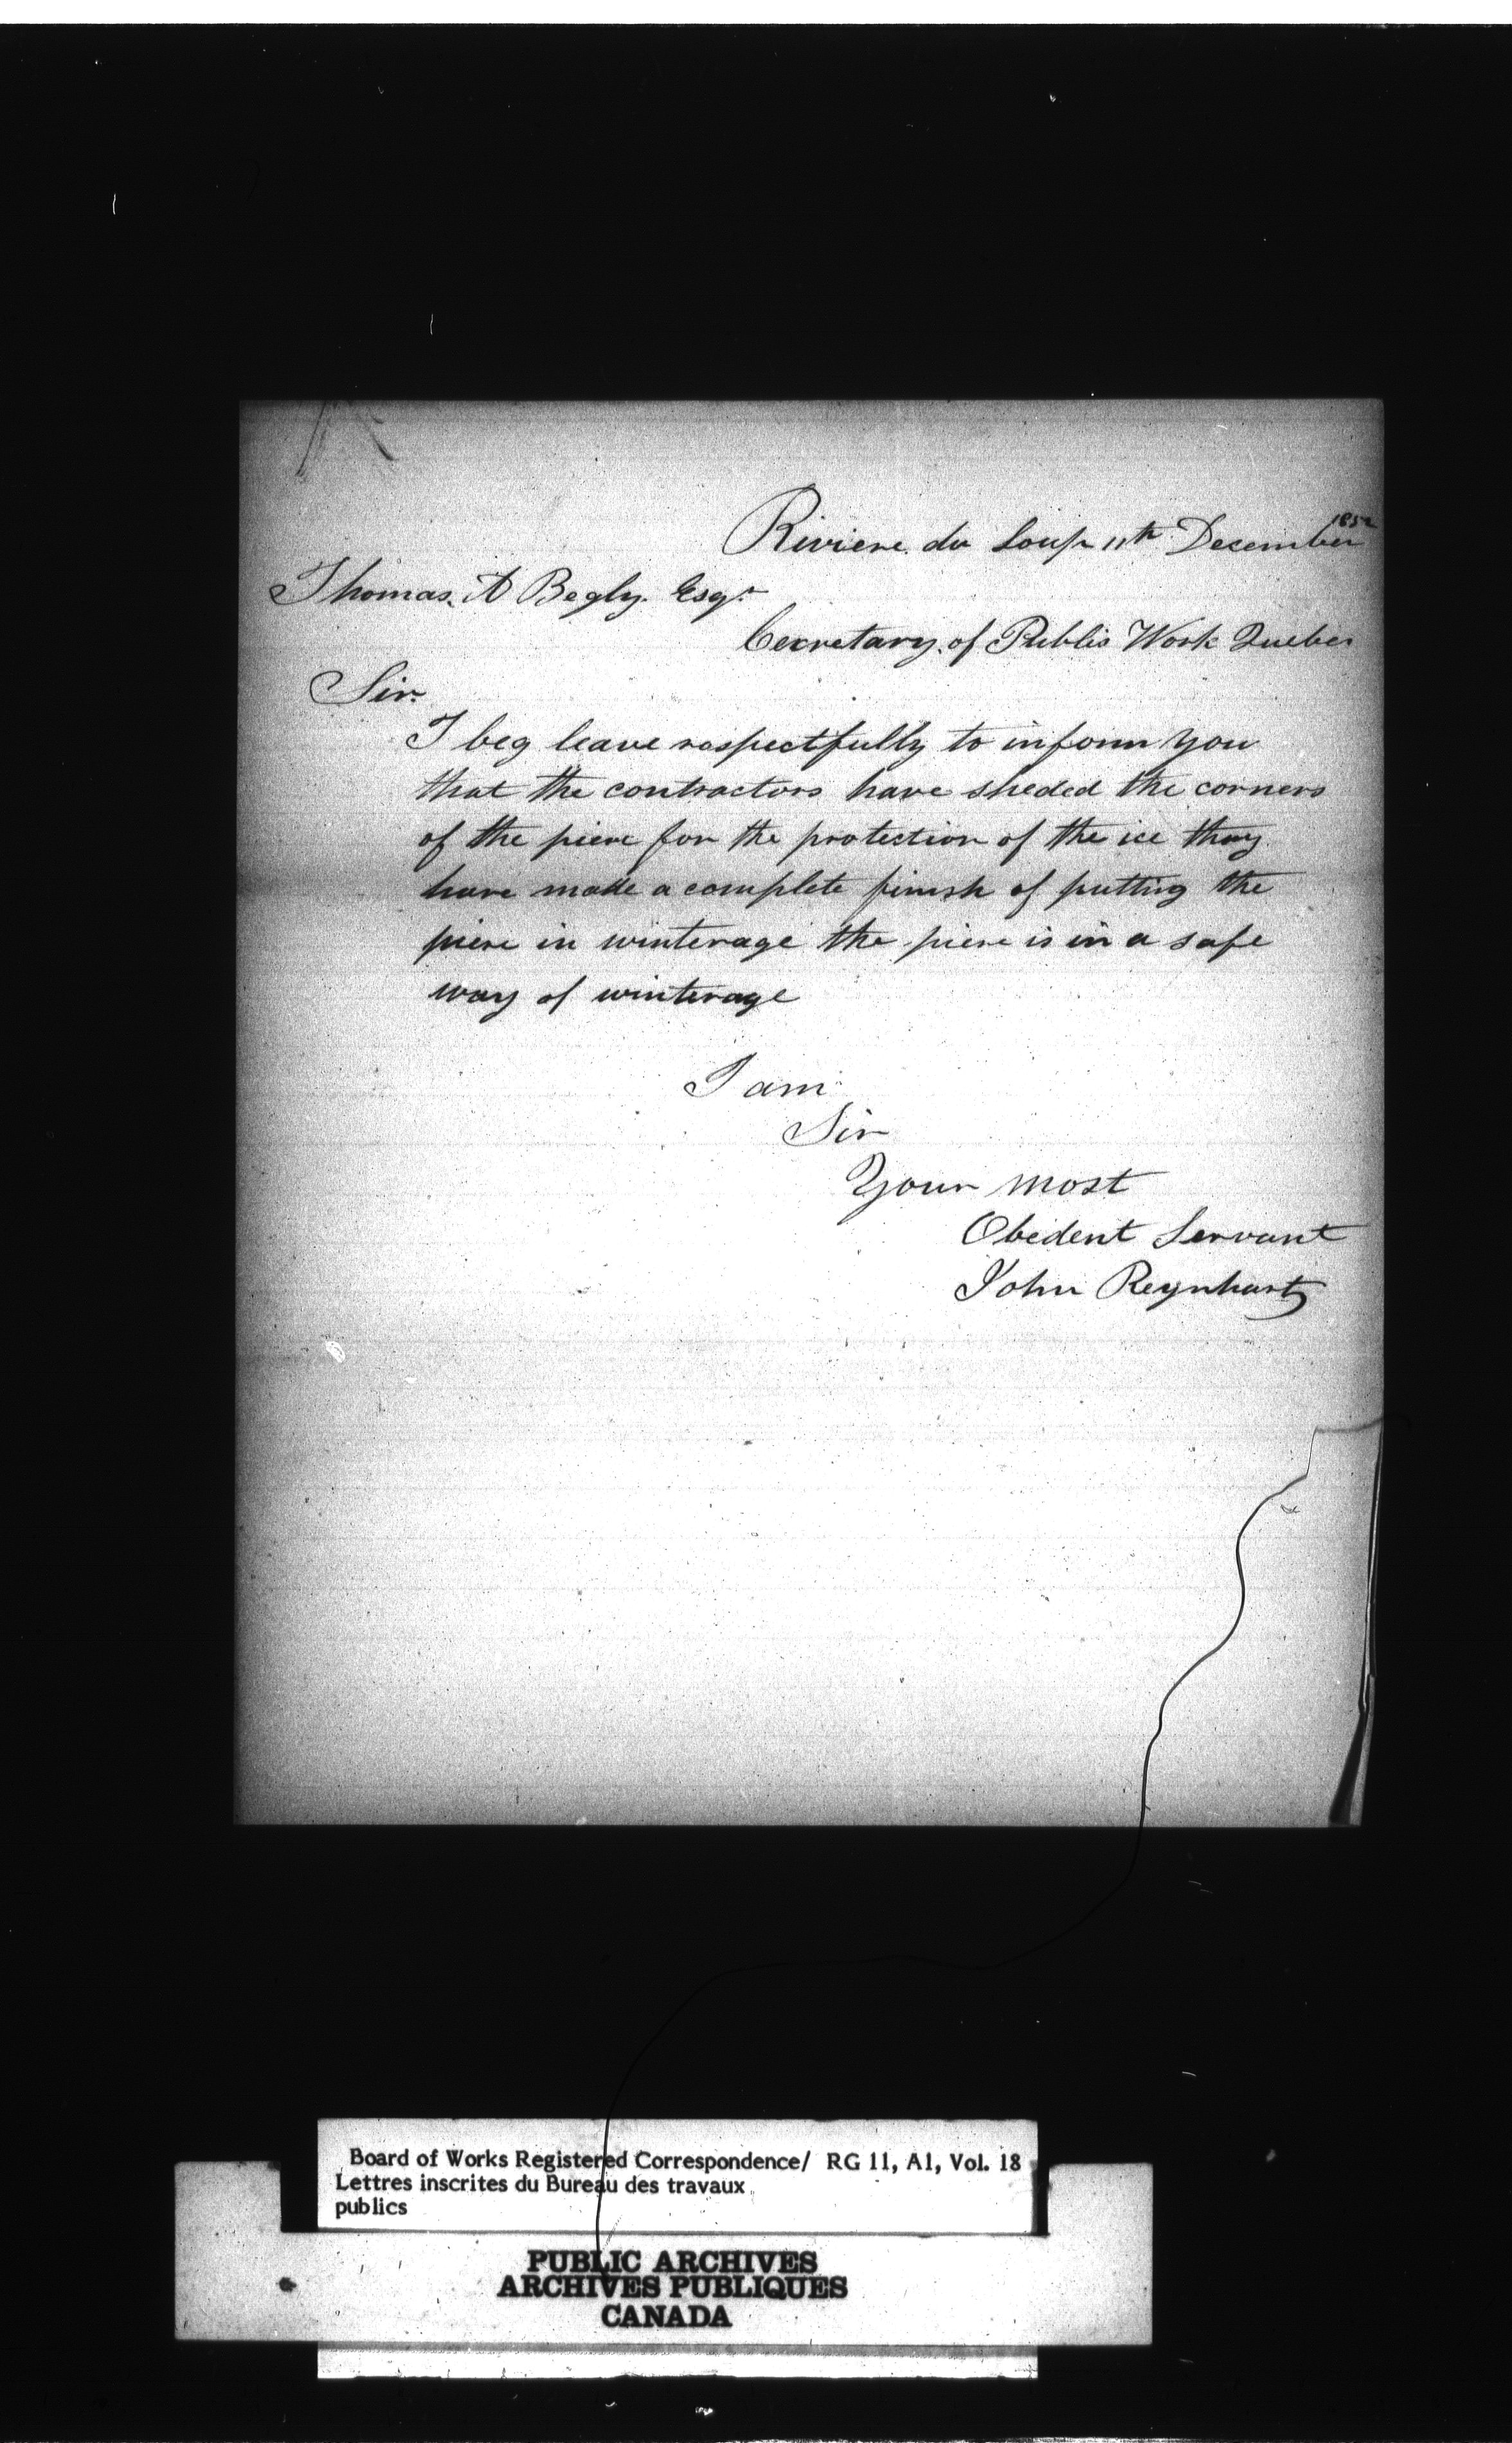 1852
Riviere du Loup 11th December
Thomas. A Begly. Esqr
Cecretary. of Publis Work Quebec
Sir.
I beg leave raspectfully to inform you
that the contractors have sheded the corners
of the piere for the protection of the ice thay
have made a complete finish of putting the
piere in winterage the piere is in a safe
way of winterage
I am
Sir
Your most
Obedent Servant
John Reynhart
Board of Works Registered Correspondence/ RG 11, A1, Vol. 18
Lettres inscrites du Bureau des travaux
publics
PUBLIC ARCHIVES
ARCHIVES PUBLIQUES
CANADA